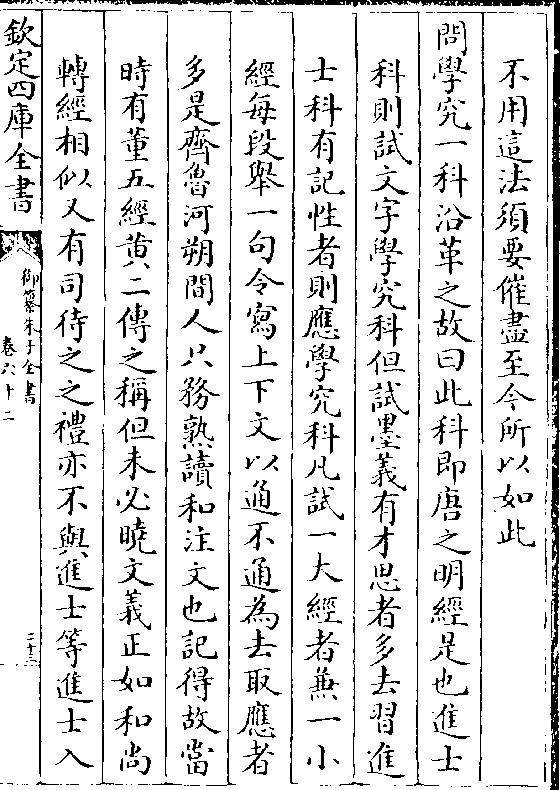 不用這法須要催盡至今所以如此
問學究一科沿革之故曰此科即唐之明經是也進士
科則試文字學究科但試墨義有才思者多去習進
士科有記性者則應學究科凡試一大經者兼一小
經每段舉一句令寫上下文以通不通為去取應者
多是齊魯河朔間人只務熟讀和注文也記得故當
時有董五經黄二傳之稱但未必曉文義正如和尚
轉經相似又有司待之之禮亦不與進士等進士入
欽定四庫全書
御纂朱子全書
卷六十二
三十三